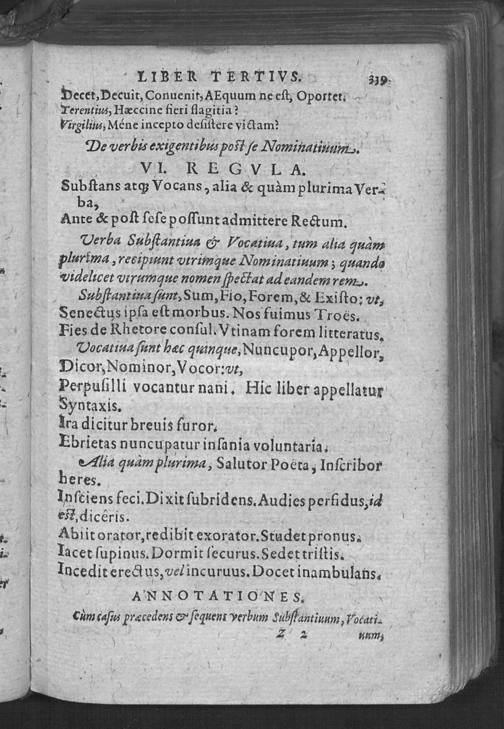 LIBER TERTIVS. 339.
Decet, Decuit, Conuenit, AEquum ne est, Oportet.
Terentius, Hæccine fieri flagitia?
Virgilius, Méne incepto desistere victam?
De verbis exigentibus post se Nominatiuum.
VI. REGVLA.
Substans atq; Vocans, alia & quàm plurima Ver-
ba,
Ante & post sese possunt admittere Rectum.
Verba Substantiua & Vocatiua, tum alia quàm
plurima, recipiunt vtrimque Nominatiuum; quando
videlicet vtrumque nomen spectat ad eandem rem.
Substantiua sunt, Sum, Fio, Forem, & Existo: vt,
Senectus ipsa est morbus. Nos fuimus Troës.
Fies de Rhetore consul. Vtinam forem litteratus.
Vocatiua sunt hæc quinque, Nuncupor, Appellor,
Dicor, Nominor, Vocor: vt,
Perpusilli vocantur nani. Hic liber appellatur
Syntaxis.
Ira dicitur breuis furor.
Ebrietas nuncupatur insania voluntaria.
Alia quàm plurima, Salutor Poëta, Inscribor
heres.
Insciens feci. Dixit subridens. Audies perfidus, id
est, dicêris.
Abiit orator, redibit exorator. Studet pronus.
Iacet supinus. Dormit securus. Sedet tristis.
Incedit erectus, vel incuruus. Docet inambulans.
ANNOTATIONES.
Cùm casus præcedens & sequens verbum Substantiuum, Vocati-
Z 2 uum,